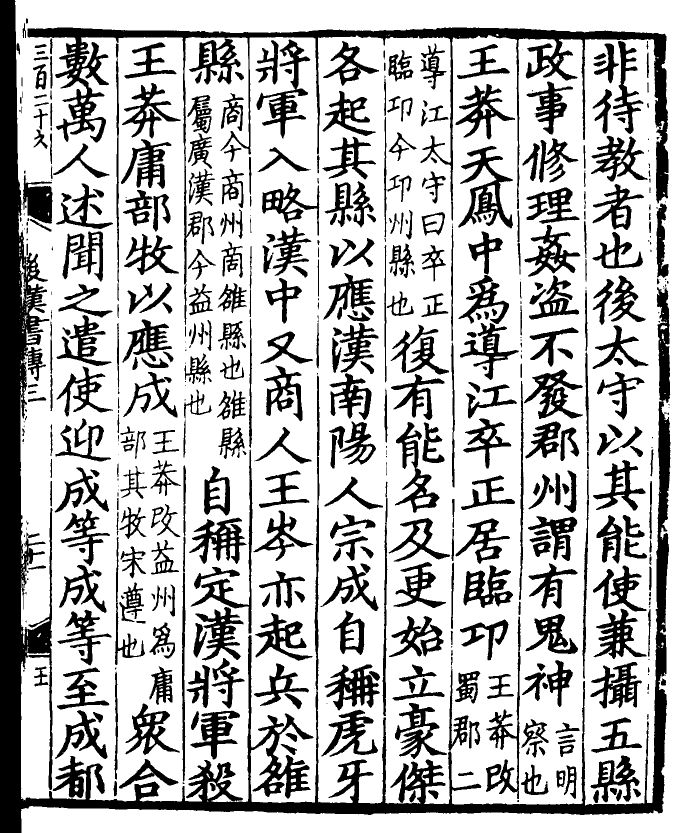 非待教者也後太守以其能使兼攝五縣
政事修理姦盗不發郡州謂有鬼神言明察也
王莽天鳳中爲導江卒正居臨卭王莽改蜀郡二
導江太守曰卒正臨卭今卭州縣也復有能名及更始立豪傑
各起其縣以應漢南陽人宗成自稱虎牙
將軍入略漢中又商人王岑亦起兵於雒
縣商今商州商雒縣也雒縣屬廣漢郡今益州縣也自稱定漢將軍殺
王莽庸部牧以應成王莽改益州爲庸部其牧宋遵也衆合
數萬人述聞之遣使迎成等成等至成都
三百二十
後漢書傳三
二十一
王